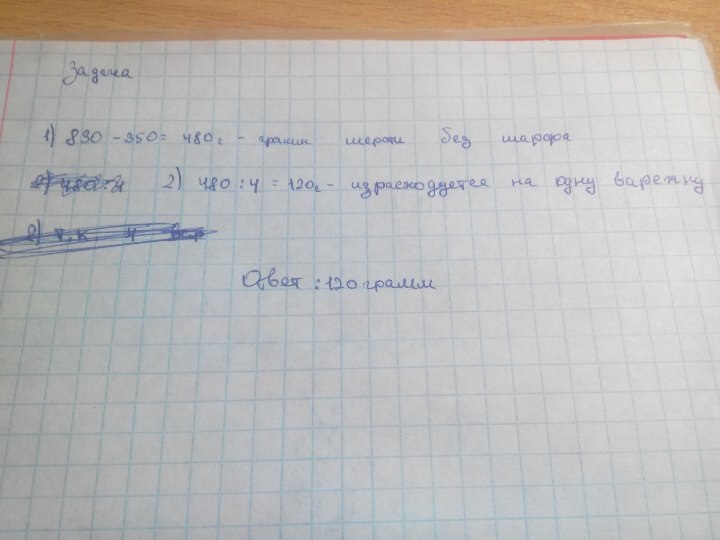 Задача
1) 830 - 350 = 480г - грамм шерсти без шарфа
2) 480 : 4 2) 480 : 4 = 120г - израсходуется на одну варежку
2) т.к 4 вар
Ответ : 120 грамм